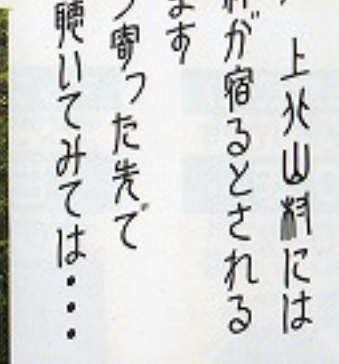 上北山村には
が宿るとされる
ます
寄った先で
聴いてみては・・・